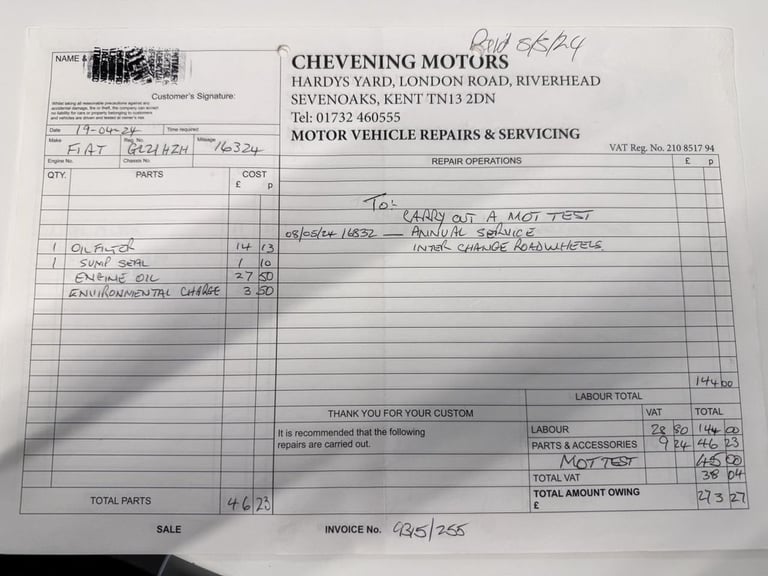 Paid 8/5/24
NAME &
CHEVENING MOTORS
HARDYS YARD, LONDON ROAD, RIVERHEAD
SEVENOAKS, KENT TN13 2DN
Tel: 01732 460555
MOTOR VEHICLE REPAIRS & SERVICING
VAT Reg. No. 210 8517 94
Customer's Signature:
Whilst taking all reasonable precautions against any
accidental damage, fire or theft, the company can accept
no liability for cars or property belonging to customers
and vehicles are driven and tested at owner's risk.
Date 19-04-24 Time required
Make FIAT Reg. No. GL21HZH Mileage 16324
Engine No. Chassis No.
QTY. PARTS COST
£ p
1 OIL FILTER 14 13
1 SUMP SEAL 1 10
ENGINE OIL 27 50
ENVIRONMENTAL CHARGE 3 50
TOTAL PARTS 46 23
REPAIR OPERATIONS £ p
To:-
CARRY OUT A MOT TEST
08/05/24 16832 — ANNUAL SERVICE
INTER CHANGE ROADWHEELS.
144 00
LABOUR TOTAL
THANK YOU FOR YOUR CUSTOM
It is recommended that the following
repairs are carried out.
VAT TOTAL
LABOUR 28 80 144 00
PARTS & ACCESSORIES 9 24 46 23
MOT TEST 45 00
TOTAL VAT 38 04
TOTAL AMOUNT OWING
£ 273 27
SALE INVOICE No. 9315/255